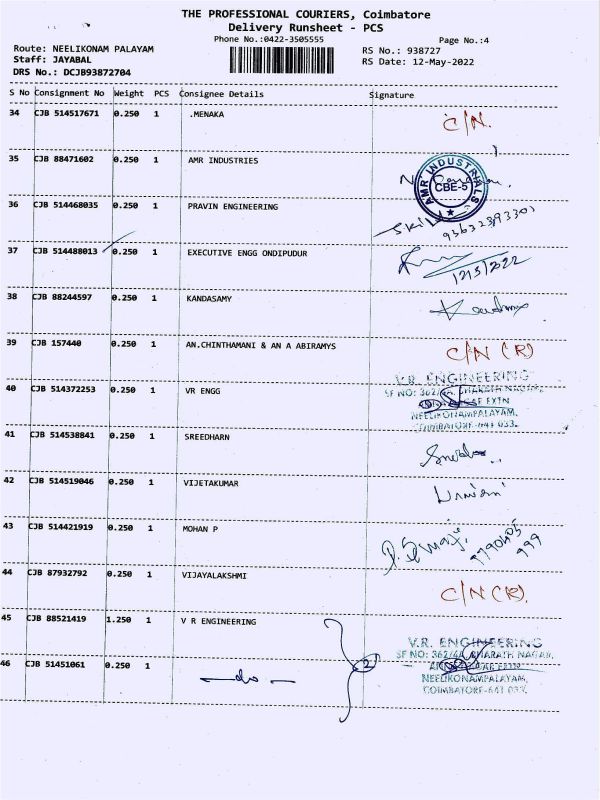 THE PROFESSIONAL COURIERS, Coimbatore
Delivery Runsheet - PCS
Phone No.:0422-3505555
Page No.:4
Route: NEELIKONAM PALAYAM
RS No.: 938727
Staff: JAYABAL
RS Date: 12-May-2022
DRS No.: DCJB93872704
S No Consignment No Weight PCS Consignee Details Signature
34 CJB 514517671 0.250 1 .MENAKA C/N.
35 CJB 88471602 0.250 1 AMR INDUSTRIES
AMR INDUSTRIALS
CBE-5
36 CJB 514468035 0.250 1 PRAVIN ENGINEERING
37 CJB 514488013 0.250 1 EXECUTIVE ENGG ONDIPUDUR
12/5/2022
38 CJB 88244597 0.250 1 KANDASAMY
39 CJB 157440 0.250 1 AN.CHINTHAMANI & AN A ABIRAMYS C/N (R)
V.R. ENGINEERING
40 CJB 514372253 0.250 1 VR ENGG SF NO: 362/4A, BHARATH NAGAR,
EXTN
NEELIKONAMPALAYAM,
COIMBATORE-641 033.
41 CJB 514538841 0.250 1 SREEDHARN
42 CJB 514519046 0.250 1 VIJETAKUMAR
43 CJB 514421919 0.250 1 MOHAN P
44 CJB 87932792 0.250 1 VIJAYALAKSHMI C/N (R).
45 CJB 88521419 1.250 1 V R ENGINEERING
V.R. ENGINEERING
SF NO: 362/4A, BHARATH NAGAR,
46 CJB 51451061 0.250 1 -do- 2
EXTN
NEELIKONAMPALAYAM,
COIMBATORE-641 033.